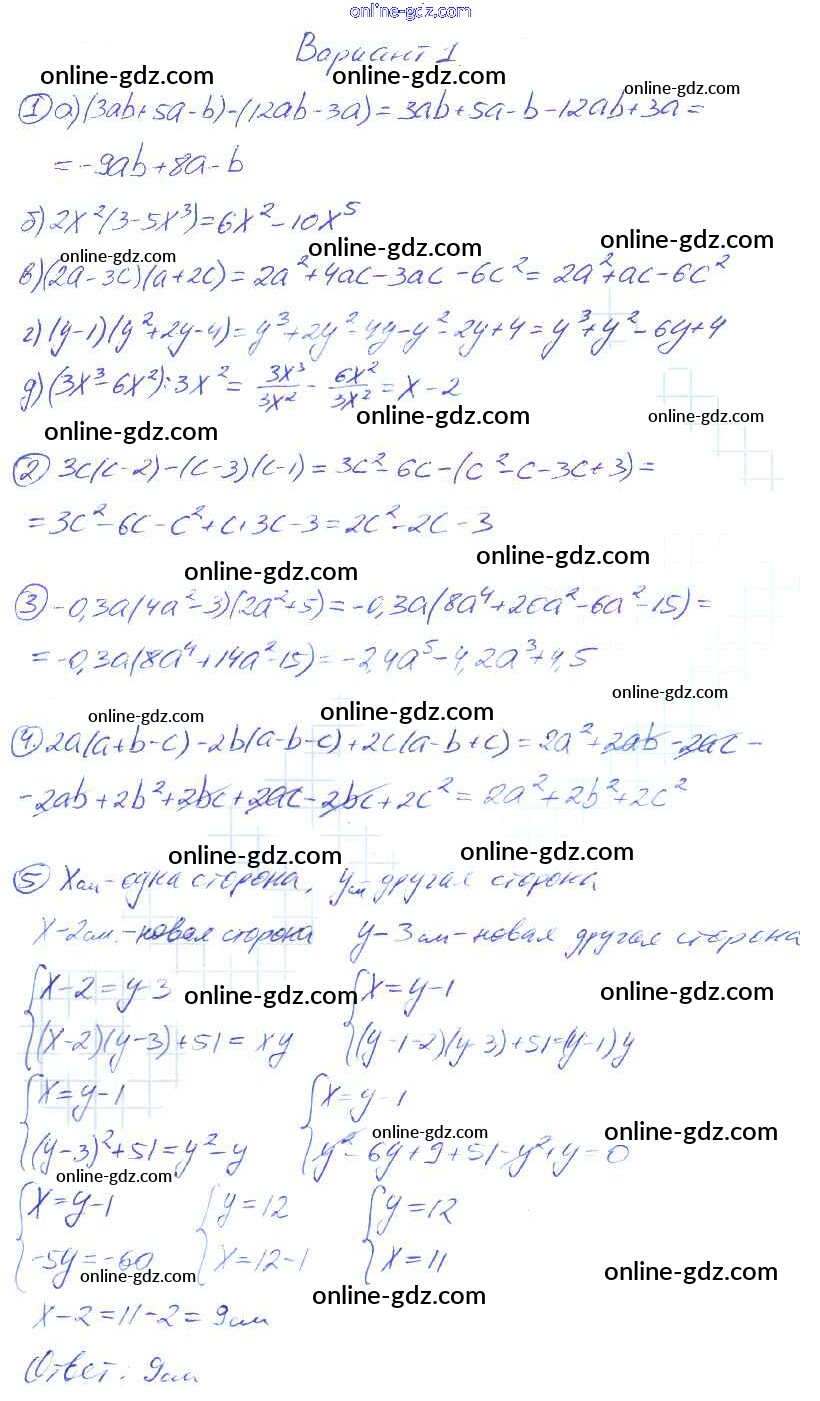 online-gdz.com
Вариант 1
online-gdz.com online-gdz.com online-gdz.com
① а) (3ab+5a-b)-(12ab-3a)=3ab+5a-b-12ab+3a=
=-9ab+8a-b
б) 2x²(3-5x³)=6x²-10x⁵
online-gdz.com online-gdz.com online-gdz.com
в) (2a-3c)(a+2c)=2a²+4ac-3ac-6c²=2a²+ac-6c²
г) (y-1)(y²+2y-4)=y³+2y²-4y-y²-2y+4=y³+y²-6y+4
д) (3x³-6x²):3x²= 3x³/3x² - 6x²/3x² = x-2
online-gdz.com online-gdz.com online-gdz.com
② 3c(c-2)-(c-3)(c-1)=3c²-6c-(c²-c-3c+3)=
=3c²-6c-c²+c+3c-3=2c²-2c-3
online-gdz.com online-gdz.com
③ -0,3a(4a²-3)(2a²+5)=-0,3a(8a⁴+20a²-6a²-15)=
=-0,3a(8a⁴+14a²-15)=-2,4a⁵-4,2a³+4,5
online-gdz.com online-gdz.com online-gdz.com
④ 2a(a+b-c)-2b(a-b-c)+2c(a-b+c)=2a²+2ab-2ac-
-2ab+2b²+2bc+2ac-2bc+2c²=2a²+2b²+2c²
online-gdz.com online-gdz.com
⑤ x см-одна сторона, y см другая сторона
x-2см.-новая сторона y-3см-новая другая сторона
{x-2=y-3 {x=y-1
online-gdz.com online-gdz.com
(x-2)(y-3)+51=xy (y-1-2)(y-3)+51=(y-1)y
{x=y-1 {x=y-1
online-gdz.com online-gdz.com
(y-3)²+51=y²-y y²-6y+9+51-y²+y=0
online-gdz.com
{x=y-1 {y=12 {y=12
-5y=-60 x=12-1 x=11
online-gdz.com online-gdz.com online-gdz.com
x-2=11-2=9см
Ответ: 9см